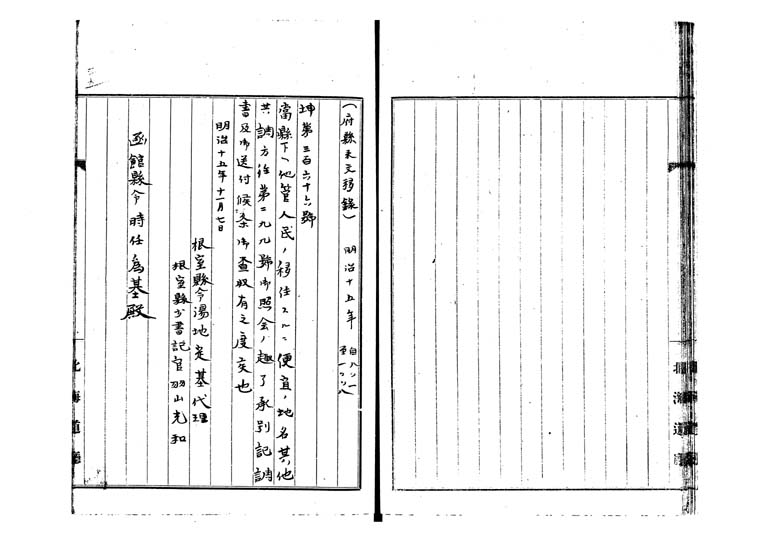 (府縣来文移錄) 明治十五年 自八ノ一 至一ノ八
坤第三百六十六號
當縣下ヘ他管人民ノ移住スルニ便宜ノ地名其他
共調方往第二九九號御照会ノ趣了承別記調
書及御送付候条御查収有之度候也
明治十五年十一月七日
根室縣令湯地定基代理
根室縣少書記官羽山光和
函館縣令時任為基殿
北海道廳